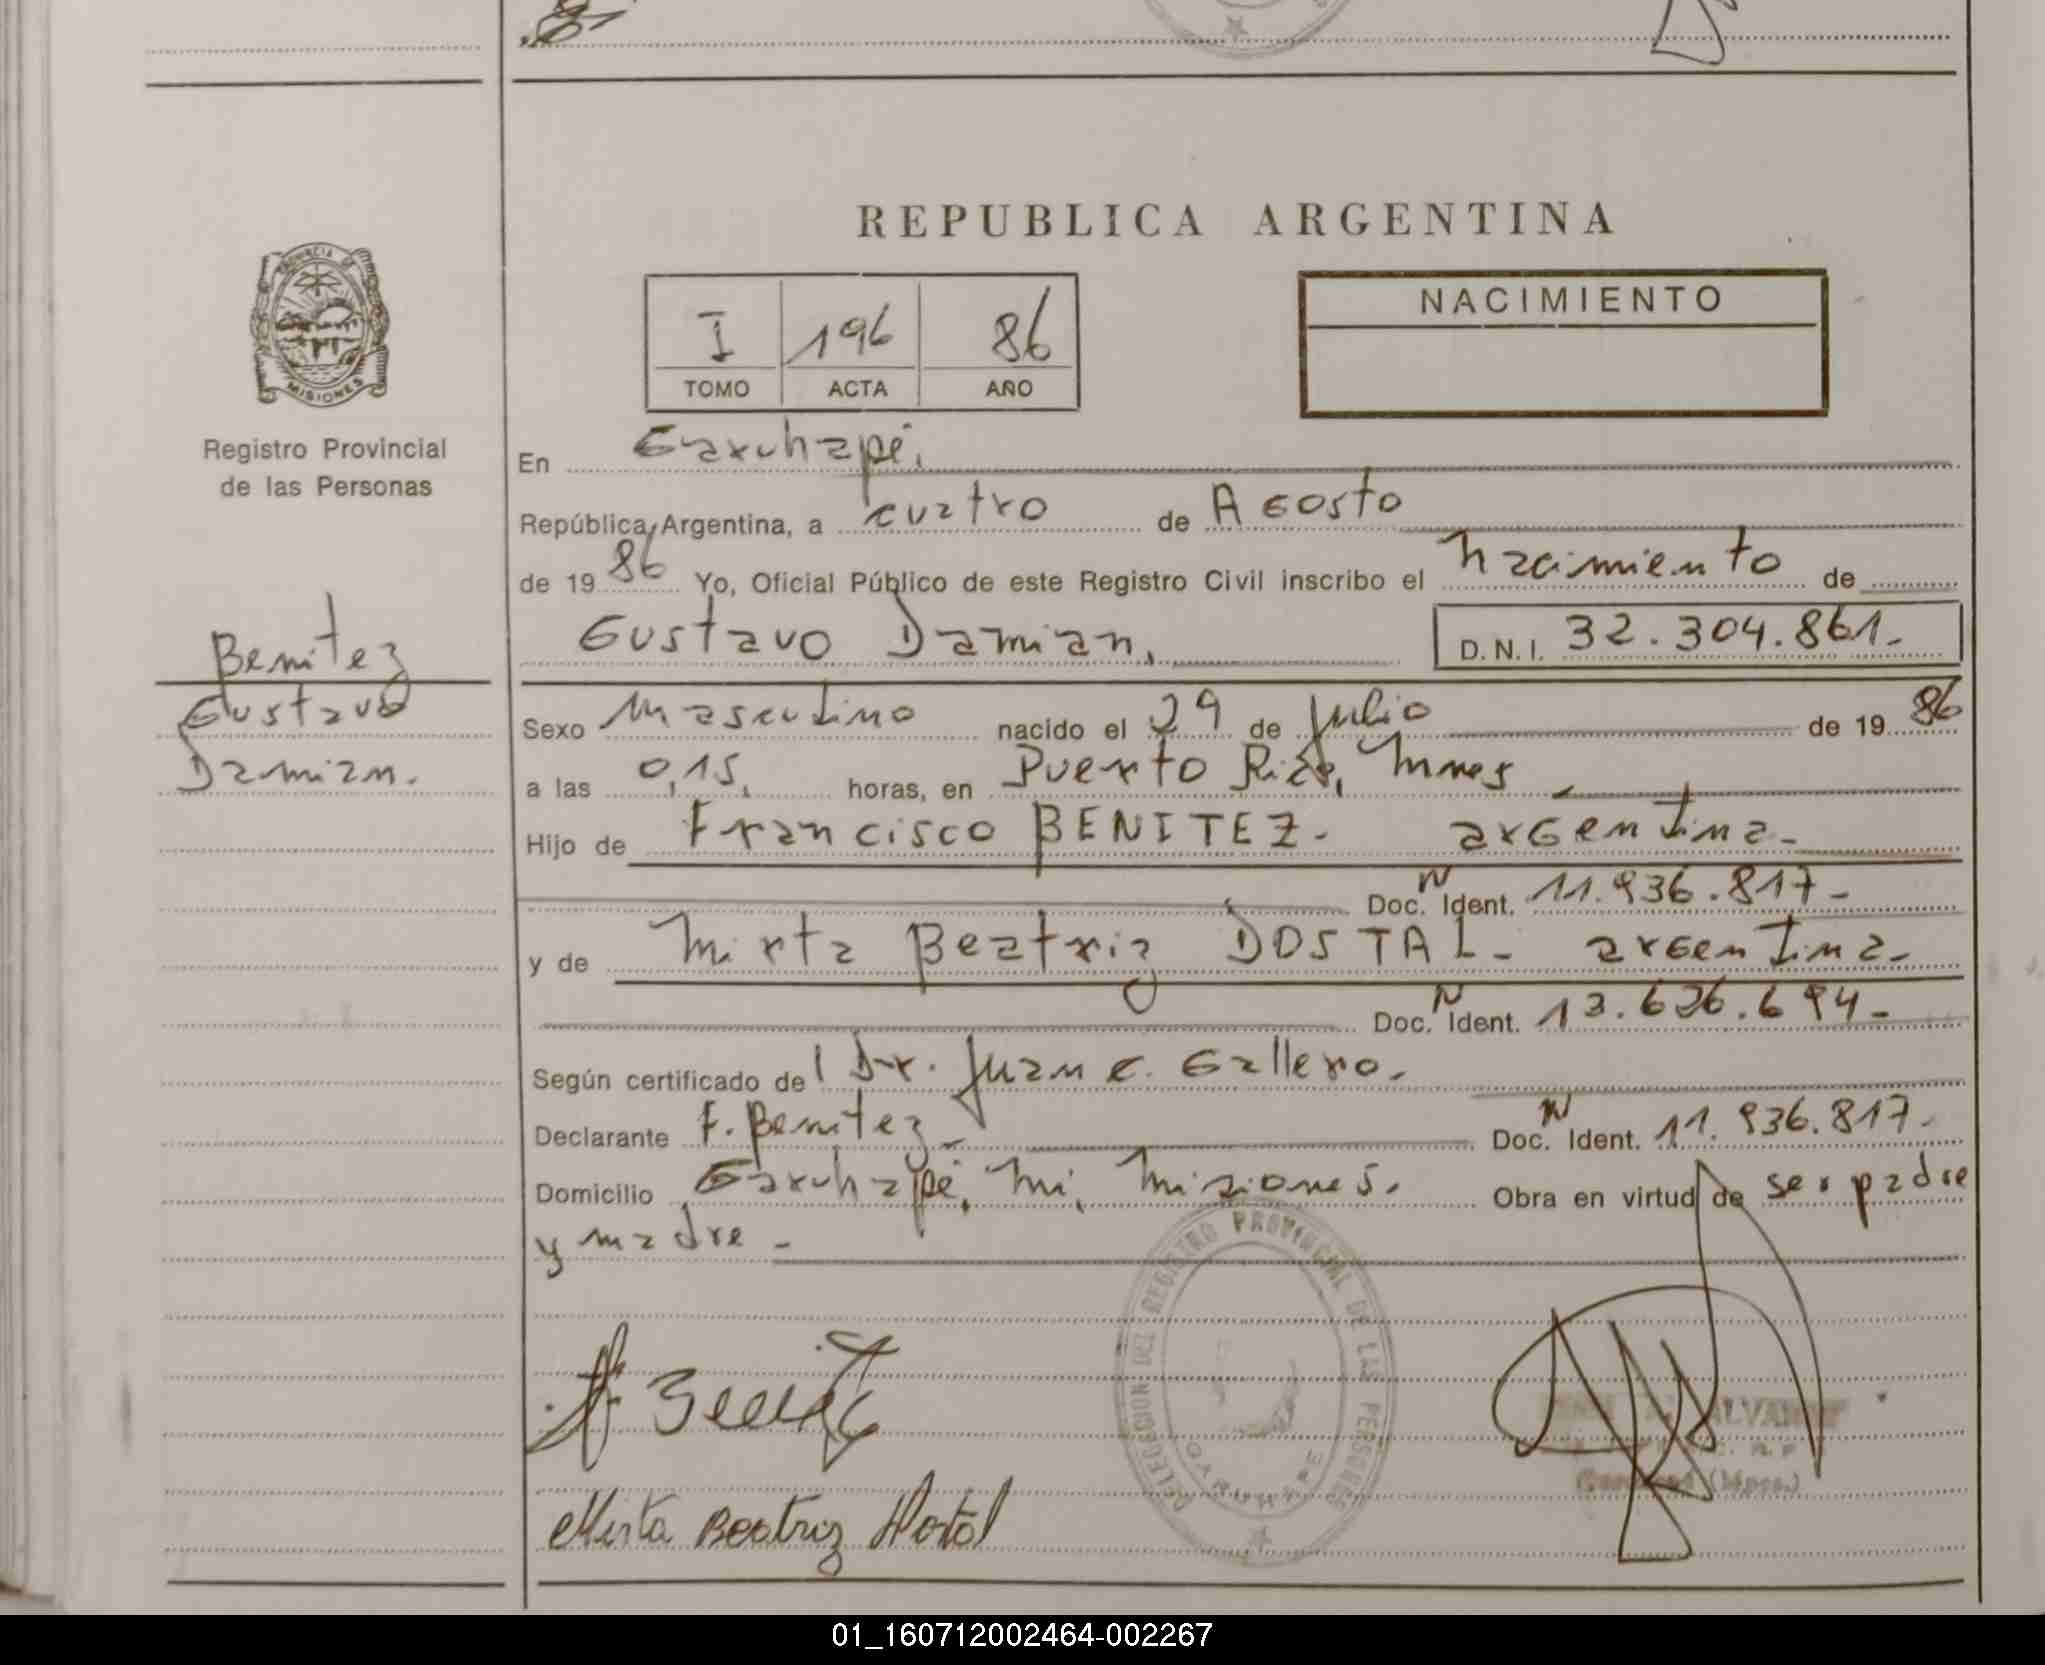 REPUBLICA ARGENTINA
PROVINCIA DE
MISIONES
Registro Provincial
de las Personas
I 196 86
TOMO ACTA AÑO
NACIMIENTO
En Garuhapé.
República Argentina, a cuatro de Agosto
de 19 86 Yo, Oficial Público de este Registro Civil inscribo el nacimiento de
Gustavo Damian. D.N.I. 32.304.861.-
Benitez
Gustavo
Damian.
Sexo masculino nacido el 29 de Julio de 19 86
a las 0,15, horas, en Puerto Rico, Mnes
Hijo de Francisco BENITEZ- argentina-
Doc. N Ident. 11.936.817-
y de Mirta Beatriz DOSTAL- argentina-
Doc. N Ident. 13.626.694-
Según certificado del Dr. Juan C. Gallero.
Declarante F. Benitez Doc. N Ident. 11.936.817-
Domicilio Garuhapé, Mi, Misiones. Obra en virtud de ser padre
y madre-
DELEGACION DEL REGISTRO PROVINCIAL DE LAS PERSONAS
GARUHAPE
Mirta Beatriz Dostal
01_160712002464-002267